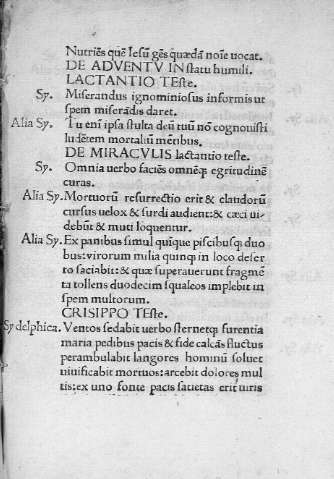 Nutriēs quē Iesū gēs quædā noīe uocat.
DE ADVENTV IN statu humili.
LACTANTIO TEste.
Sy. Miserandus ignominiosus informis ut
spem miserādis daret.
Alia Sy. Tu enī ipsa stulta deū tuū nō cognouisti
ludētem mortaliū mētibus.
DE MIRACVLIS lactantio teste.
Sy. Omnia uerbo faciēs omnēq; egritudinē
curas.
Alia Sy. Mortuorū resurrectio erit & claudorū
cursus uelox & surdi audient: & cæci ui-
debūt & muti loquentur.
Alia Sy. Ex panibus simul quīque piscibusq; duo
bus: uirorum milia quinq; in loco deser
to saciabit: & quæ superauerunt fragmē
ta tollens duodecim squaleos implebit in
spem multorum.
CRISIPPO TEste.
Sy delphica. Ventos sedabit uerbo sternetq; furentia
maria pedibus pacis & fide calcās fluctus
perambulabit langores hominū soluet
uiuificabit mortuos: arcebit dolores mul
tis: ex uno fonte pacis satietas erit uiris